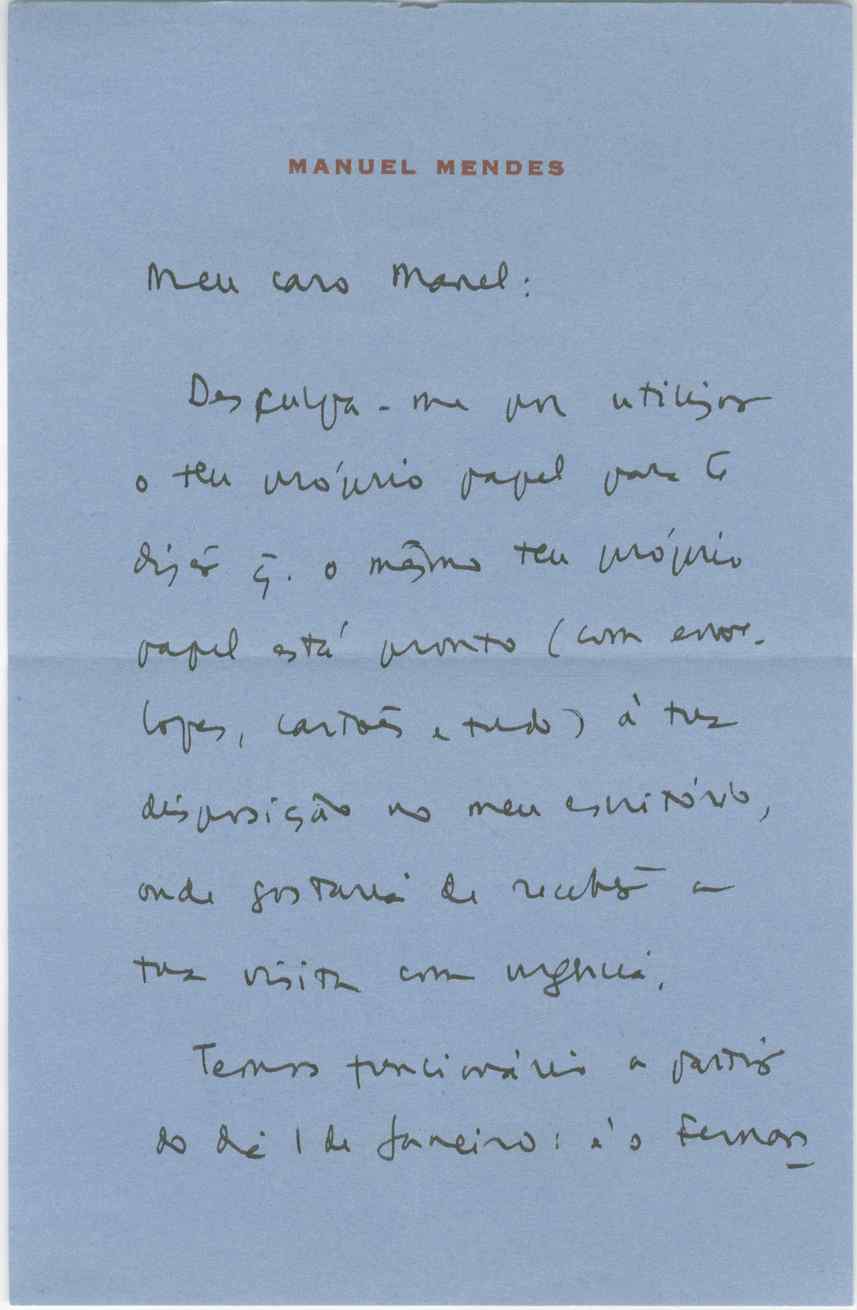 MANUEL MENDES
Meu caro Manel:
Desculpa-me por utilizar
o teu próprio papel para te
dizer q. o mesmo teu próprio
papel está pronto (com enve-
lopes, cartões e tudo) à tua
disposição no meu escritório,
onde gostaria de receber a
tua visita com urgência.
Temos funcionário a partir
do dia 1 de Janeiro: é o Fernan